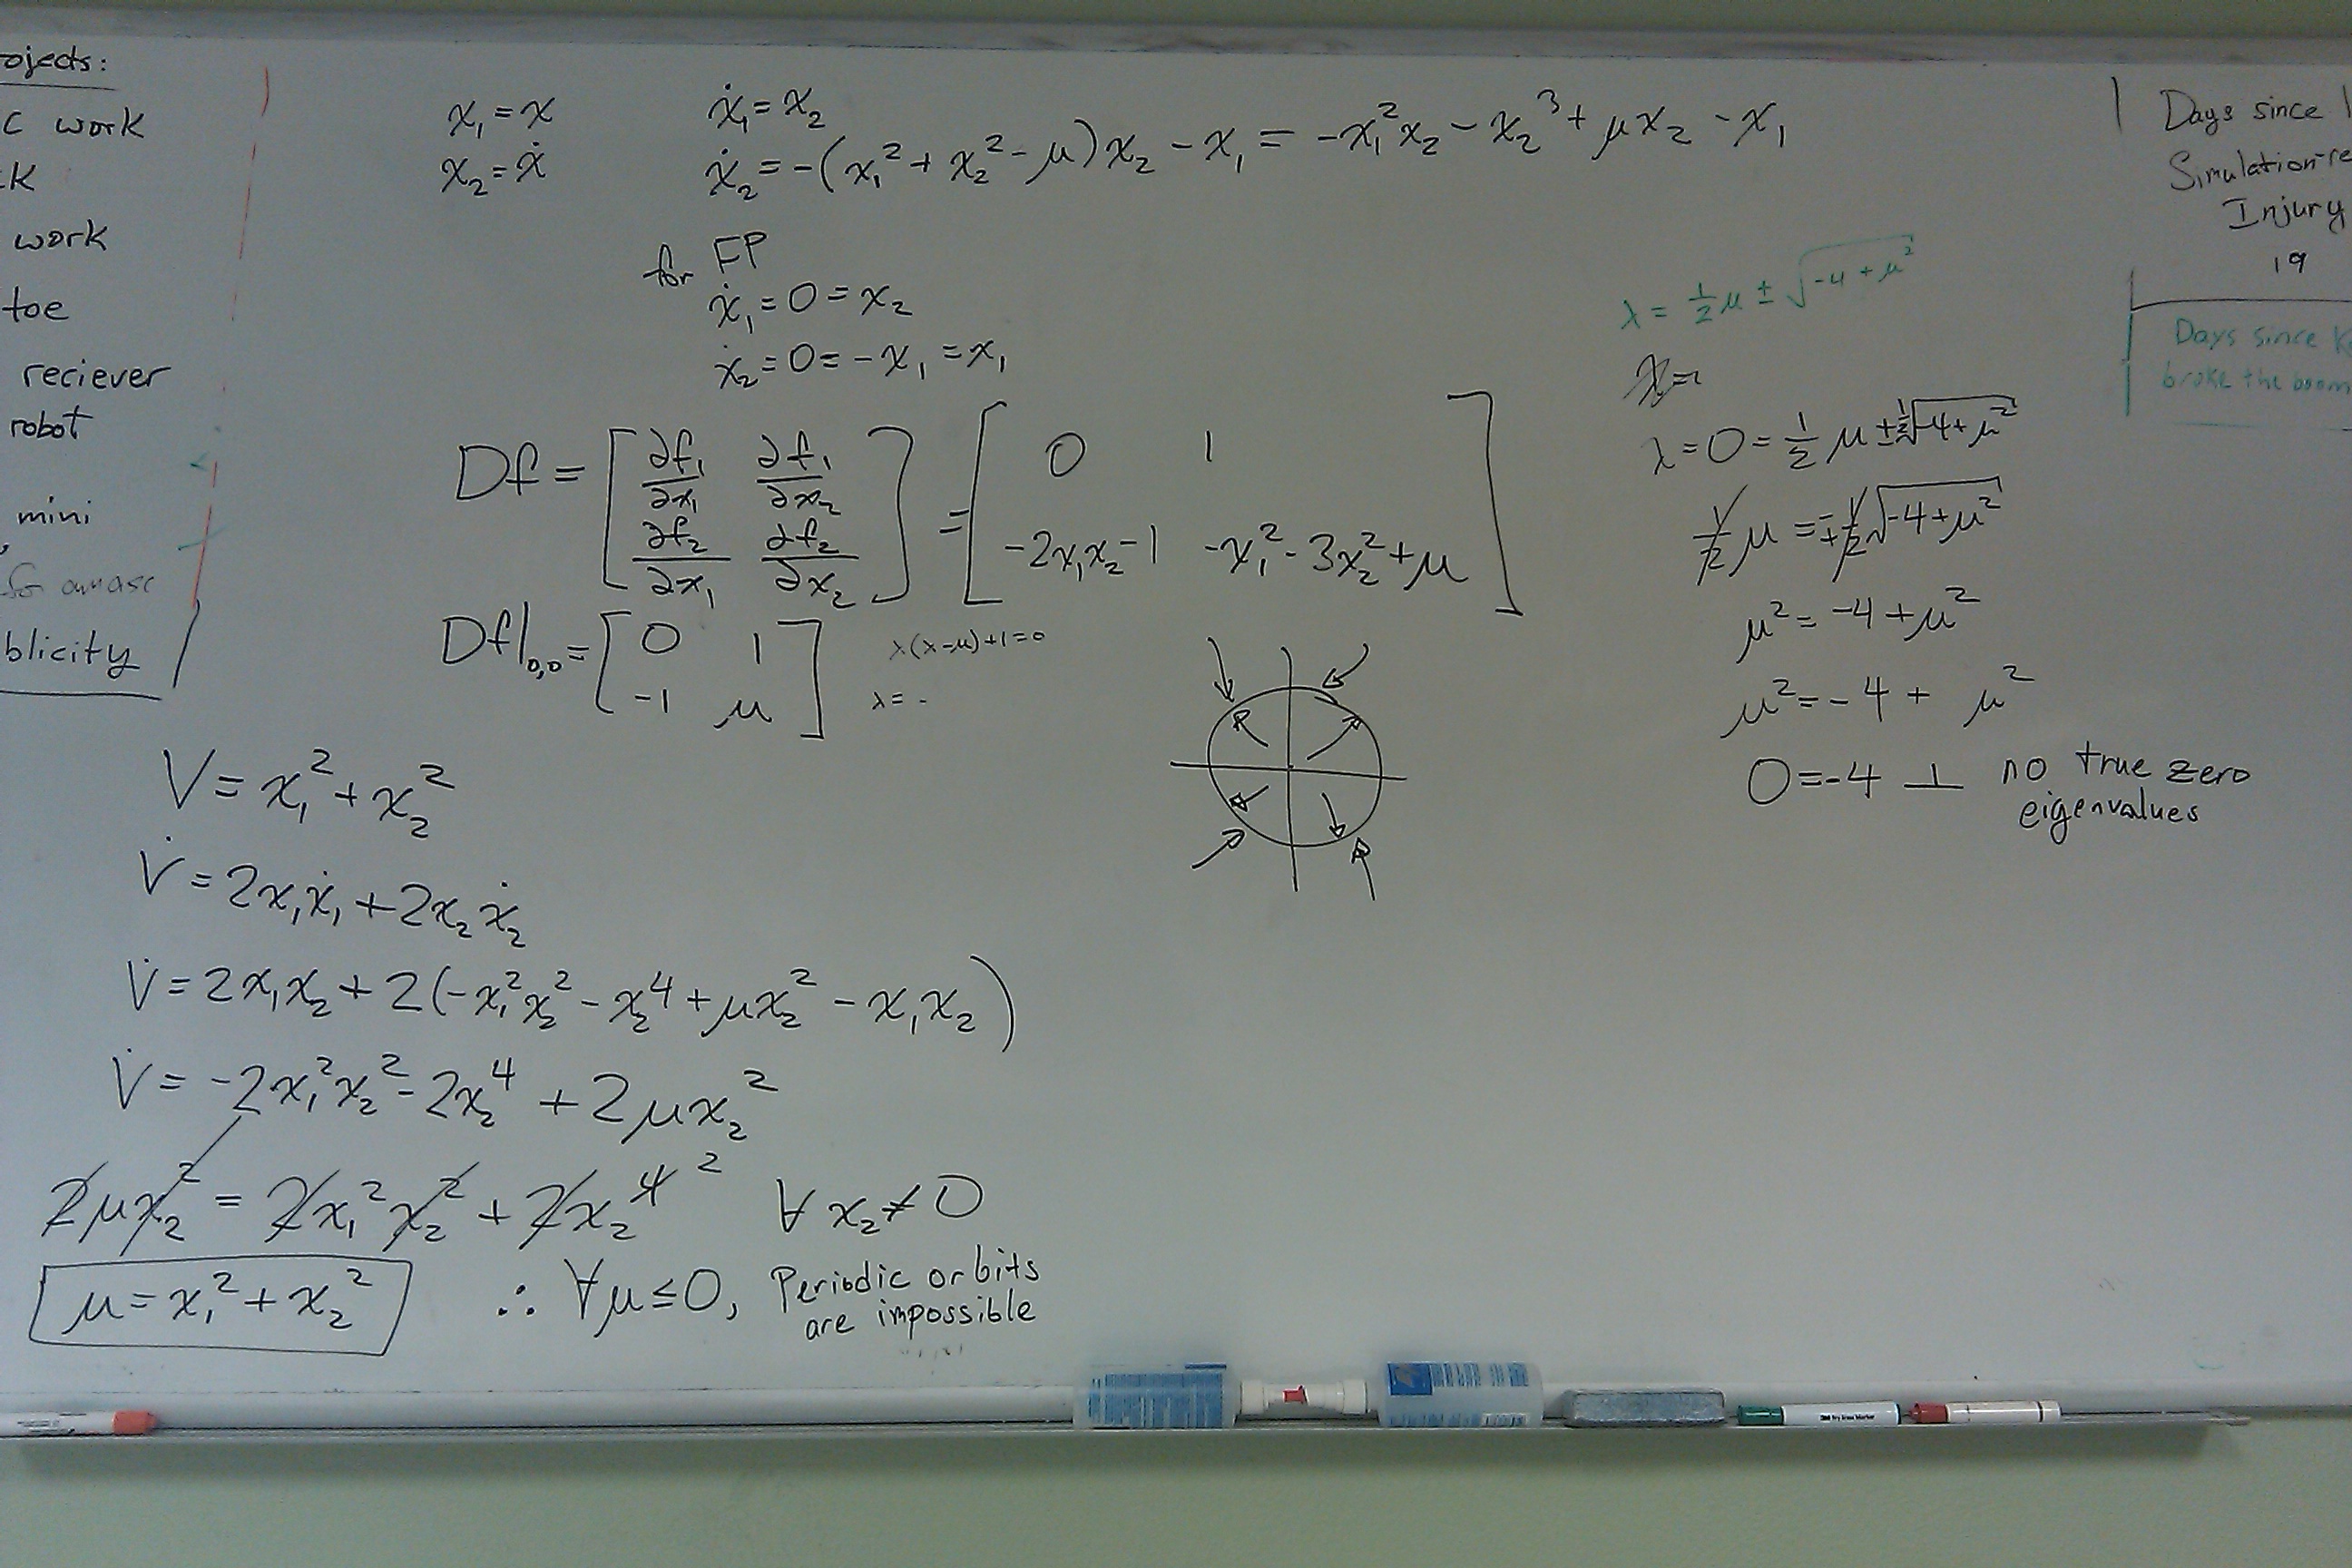 ojects:
C work
K
work
toe
reciever
robot
mini
for amasc
blicity
x₁ = x
x₂ = ẋ
ẋ₁ = x₂
ẋ₂ = -(x₁² + x₂² - μ)x₂ - x₁ = -x₁²x₂ - x₂³ + μx₂ - x₁
for FP
ẋ₁ = 0 = x₂
ẋ₂ = 0 = -x₁ = x₁
Df = [∂f₁/∂x₁ ∂f₁/∂x₂
∂f₂/∂x₁ ∂f₂/∂x₂] = [0 1
-2x₁x₂-1 -x₁²-3x₂²+μ]
Df|₀,₀ = [0 1
-1 μ]
λ(λ-μ)+1=0
λ= -
V = x₁² + x₂²
V̇ = 2x₁ẋ₁ + 2x₂ẋ₂
V̇ = 2x₁x₂ + 2(-x₁²x₂² - x₂⁴ + μx₂² - x₁x₂)
V̇ = -2x₁²x₂² - 2x₂⁴ + 2μx₂²
2μx₂² = 2x₁²x₂² + 2x₂⁴ ² ∀ x₂≠0
μ = x₁² + x₂² ∴ ∀μ≤0, Periodic orbits
are impossible
λ = ½μ ± √(-4+μ²)
λ=
λ = 0 = ½μ ± ½√(-4+μ²)
½μ = ∓½√(-4+μ²)
μ² = -4+μ²
μ² = -4 + μ²
0 = -4 ⊥ no true zero
eigenvalues
Days since
Simulation-re
Injury
19
Days since
broke the boom